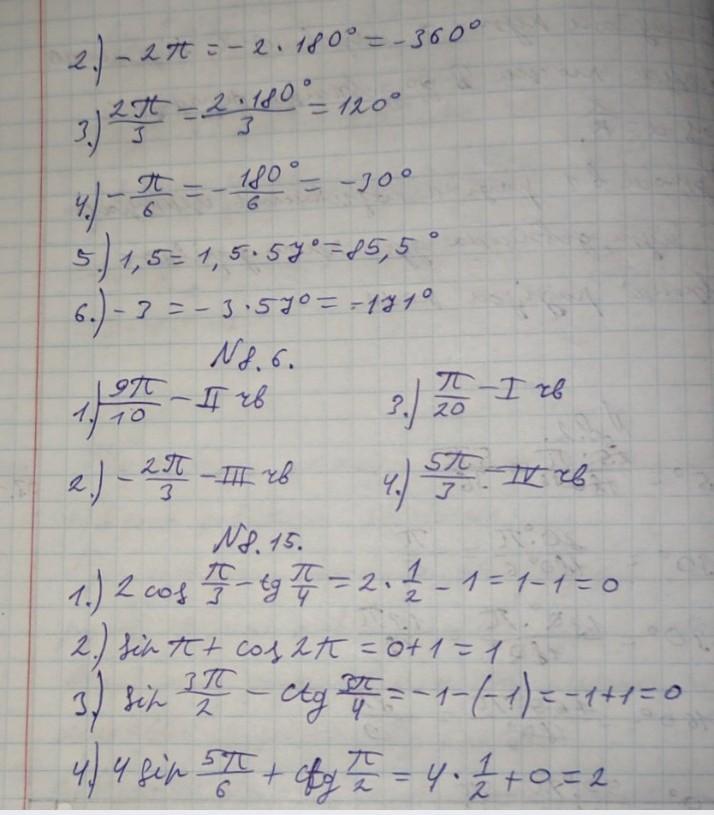 2.) -2π = -2·180° = -360°
3.) 2π/3 = 2·180°/3 = 120°
4.) -π/6 = -180°/6 = -30°
5.) 1,5 = 1,5·57° = 85,5°
6.) -3 = -3·57° = -171°
N8.6.
1.) 9π/10 - II чв 3.) π/20 - I чв
2.) -2π/3 - III чв 4.) 5π/3 - IV чв
N8.15.
1.) 2 cos π/3 - tg π/4 = 2·1/2 - 1 = 1-1 = 0
2.) sin π + cos 2π = 0+1 = 1
3.) sin 3π/2 - ctg 3π/4 = -1-(-1) = -1+1 = 0
4.) 4 sin 5π/6 + ctg π/2 = 4·1/2 + 0 = 2